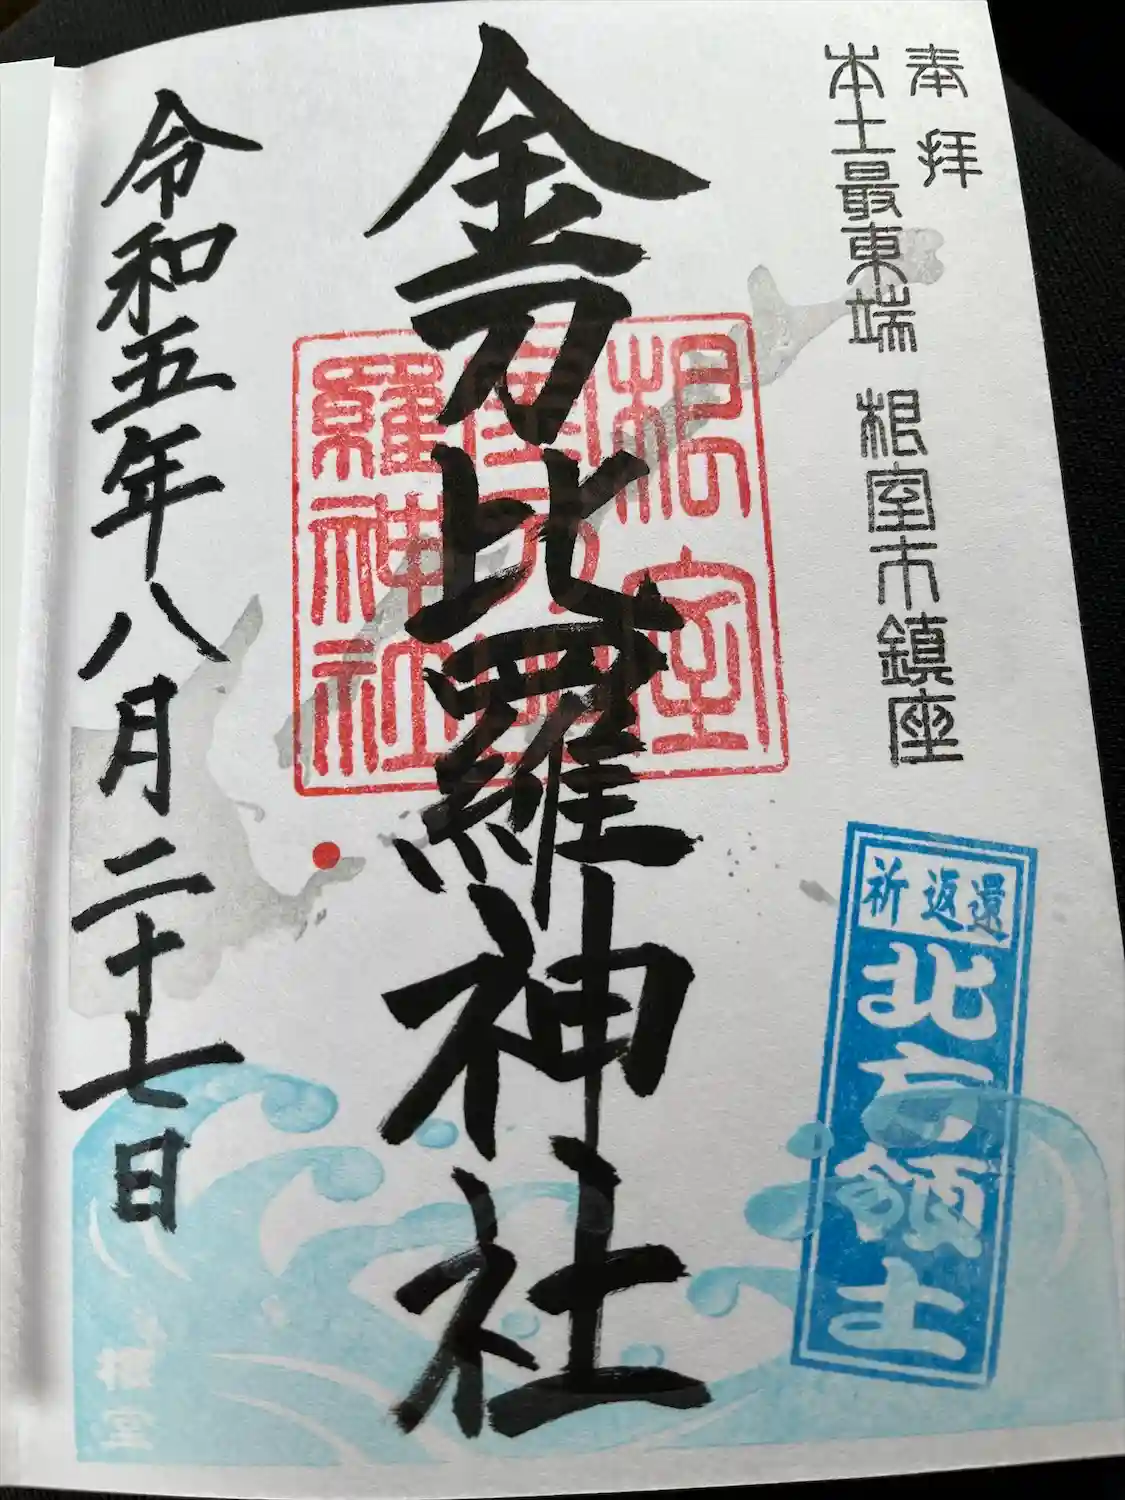 奉拝
本土最東端 根室市鎮座
根室
金刀比
羅神社
金刀比羅神社
祈 返還
北方領土
令和五年八月二十七日
根室